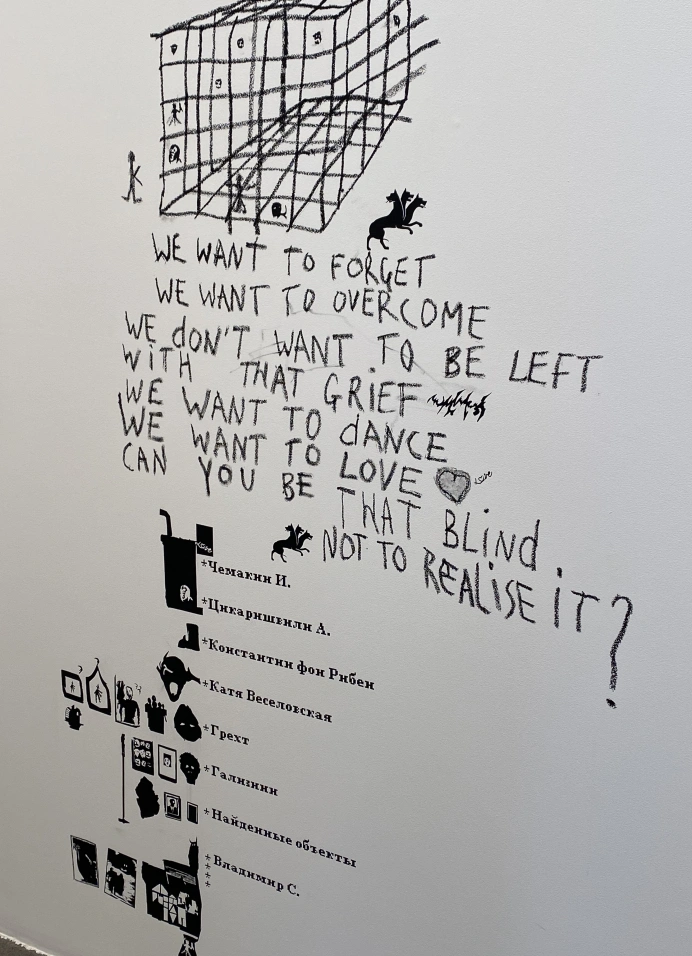 WE WANT TO FORGET
WE WANT TO OVERCOME
WE dON'T WANT TO BE LEFT
WiTH THAT GRiEF
WE WANT TO dANCE
WE WANT TO LOVE
CAN YOU BE THAT BLiNd.
NOT TO REALiSE iT?
*Чемакин И.
*Цикаришвили А.
*Константин фон Рибен
*Катя Веселовская
*Грехт
*Гализнии
*Найденные объекты
*Владимир С.
*
*
*